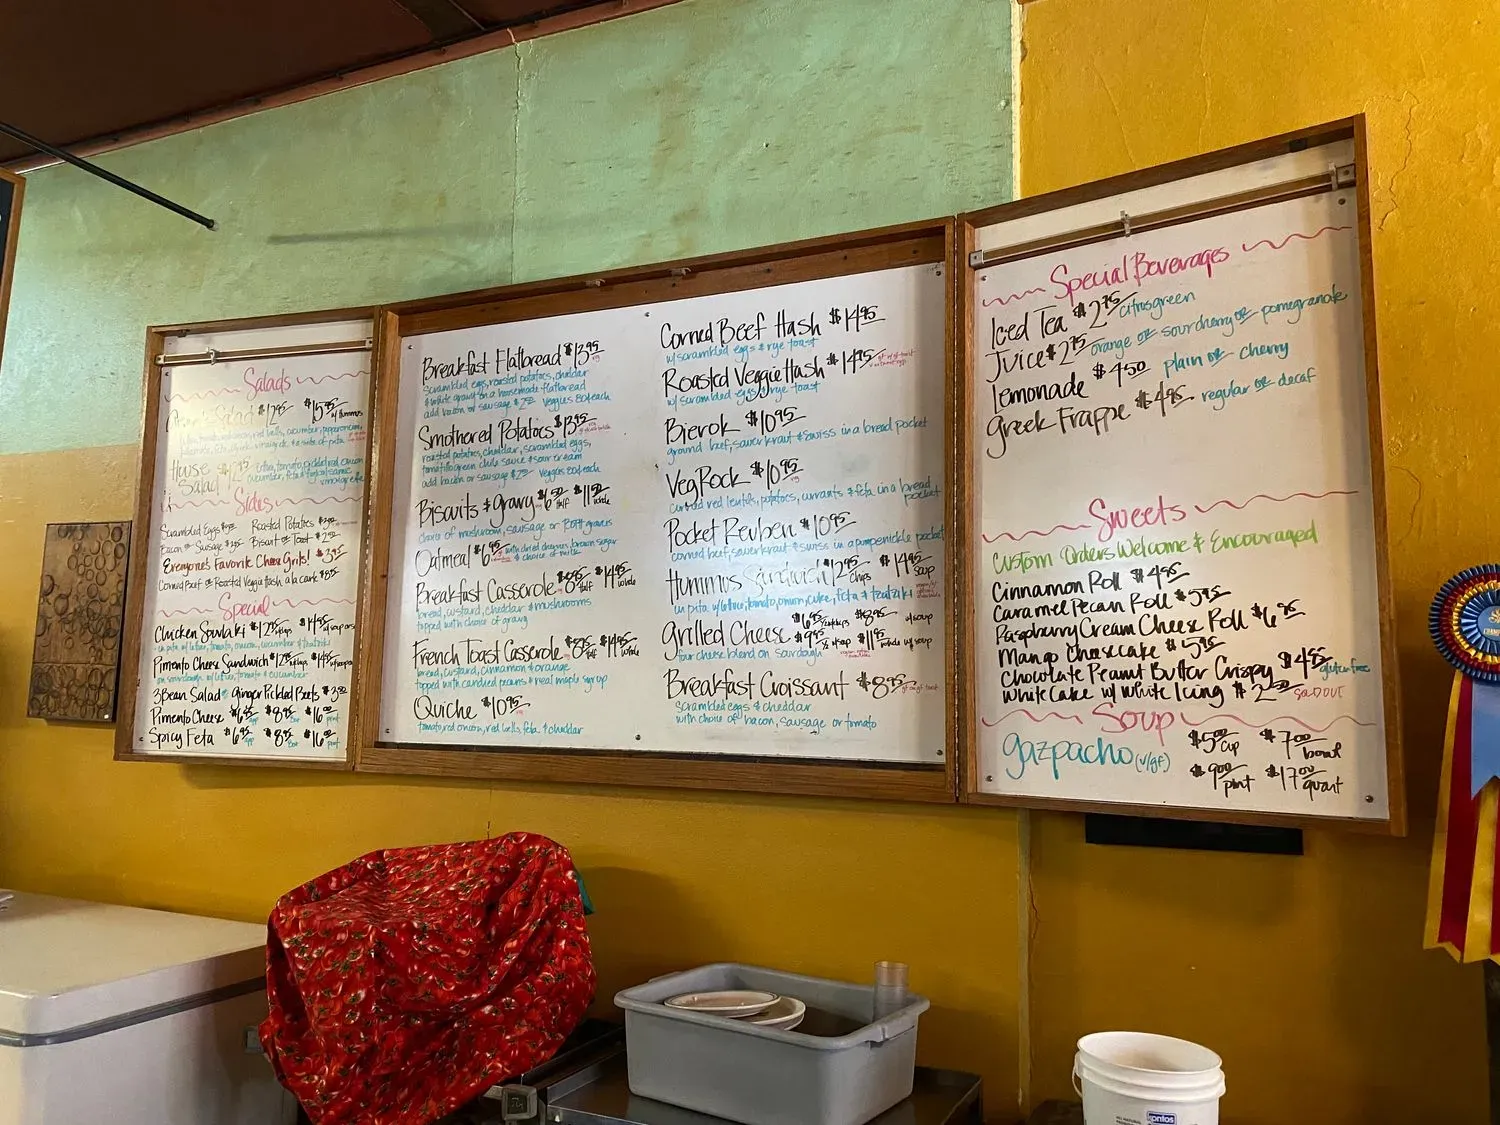 Salads
Salad $12.95 $15.95
w/ hummus
House
Salad
Sides
Scrambled Eggs Roasted Potatoes
Bacon or Sausage Biscuit or Toast
Everyone's Favorite Cheese Grits!
Corned Beef or Roasted Veggie Hash a la carte
Special
Chicken Souvlaki $12.95
in pita w/ lettuce, tomato, onion, cucumber & tzatziki
Pimento Cheese Sandwich
on sourdough w/ lettuce, tomato & cucumber
3 Bean Salad or Ginger Pickled Beets
Pimento Cheese $6.95 $8.95 $16.00 pint
Spicy Feta $6.95 $8.95 $16.00 pint
Breakfast Flatbread $13.95
scrambled eggs, roasted potatoes, cheddar
& white gravy on a homemade flatbread
add bacon or sausage veggies 80¢ each
Smothered Potatoes $13.95
roasted potatoes, cheddar, scrambled eggs,
tomatillo green chile sauce & sour cream
add bacon or sausage veggies 80¢ each
Biscuits & Gravy $6.50 half $11.50 whole
choice of mushroom, sausage or gravies
Oatmeal $6.95 with dried cherries, brown sugar
& choice of milk
Breakfast Casserole $8.95 half $14.95 whole
bread, custard, cheddar & mushrooms
topped with choice of gravy
French Toast Casserole $8.95 half $14.95 whole
bread, custard, cinnamon & orange
topped with candied pecans & real maple syrup
Quiche $10.95
tomato, red onion, red bells, feta & cheddar
Corned Beef Hash $14.95
w/ scrambled eggs & rye toast
Roasted Veggie Hash $14.95
w/ scrambled eggs & rye toast
Bierok $10.95
ground beef, sauerkraut & swiss in a bread pocket
VegRock $10.95
curried red lentils, potatoes, currants & feta in a bread
pocket
Pocket Reuben $10.95
corned beef, sauerkraut & swiss in a pumpernickle pocket
Hummus Sandwich $12.95 chips $14.95 soup
in pita w/ lettuce, tomato, onion, cuke, feta & tzatziki
Grilled Cheese $6.95 $8.95 w/soup
$9.95 $11.95 whole w/ soup
four cheese blend on sourdough
Breakfast Croissant $8.95
scrambled eggs & cheddar
with choice of bacon, sausage or tomato
Special Beverages
Iced Tea $2.75 citrus green
Juice $2.75 orange or sour cherry or pomegranate
Lemonade $4.50 plain or cherry
Greek Frappe $4.95 regular or decaf
Sweets
Custom Orders Welcome & Encouraged
Cinnamon Roll $4.95
Caramel Pecan Roll $5.95
Raspberry Cream Cheese Roll $6.95
Mango Cheesecake $5.95
Chocolate Peanut Butter Crispy $4.95 gluten free
White Cake w/ White Icing $2.50 SOLD OUT
Soup
gazpacho (v/gf) $5.00 cup $7.00 bowl
$9.00 pint $17.00 quart